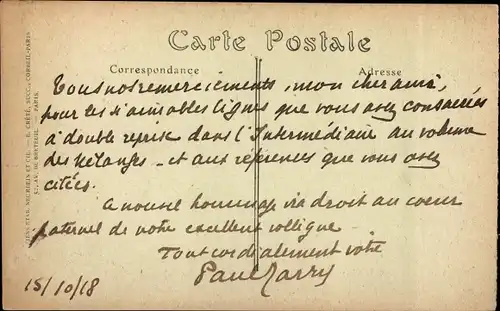 Carte Postale
Correspondance
Adresse
Tous nos remerciements, mon cher ami,
pour les si aimables lignes que vous avez consacrées
à double reprise dans l'Intermédiaire au volume
des Mélanges - et aux références que vous avez
citées.
a nouvel hommage ira droit au coeur
paternel de votre excellent collègue.
Tout cordialement votre
Paul
15/10/18